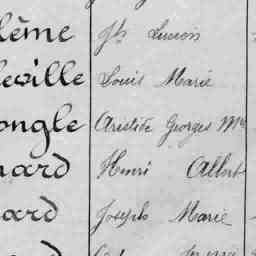 lème Jh Lucien
leville Louis Marie
ongle Aristide Georges Mie
nard Henri Albert
ard Joseph Marie